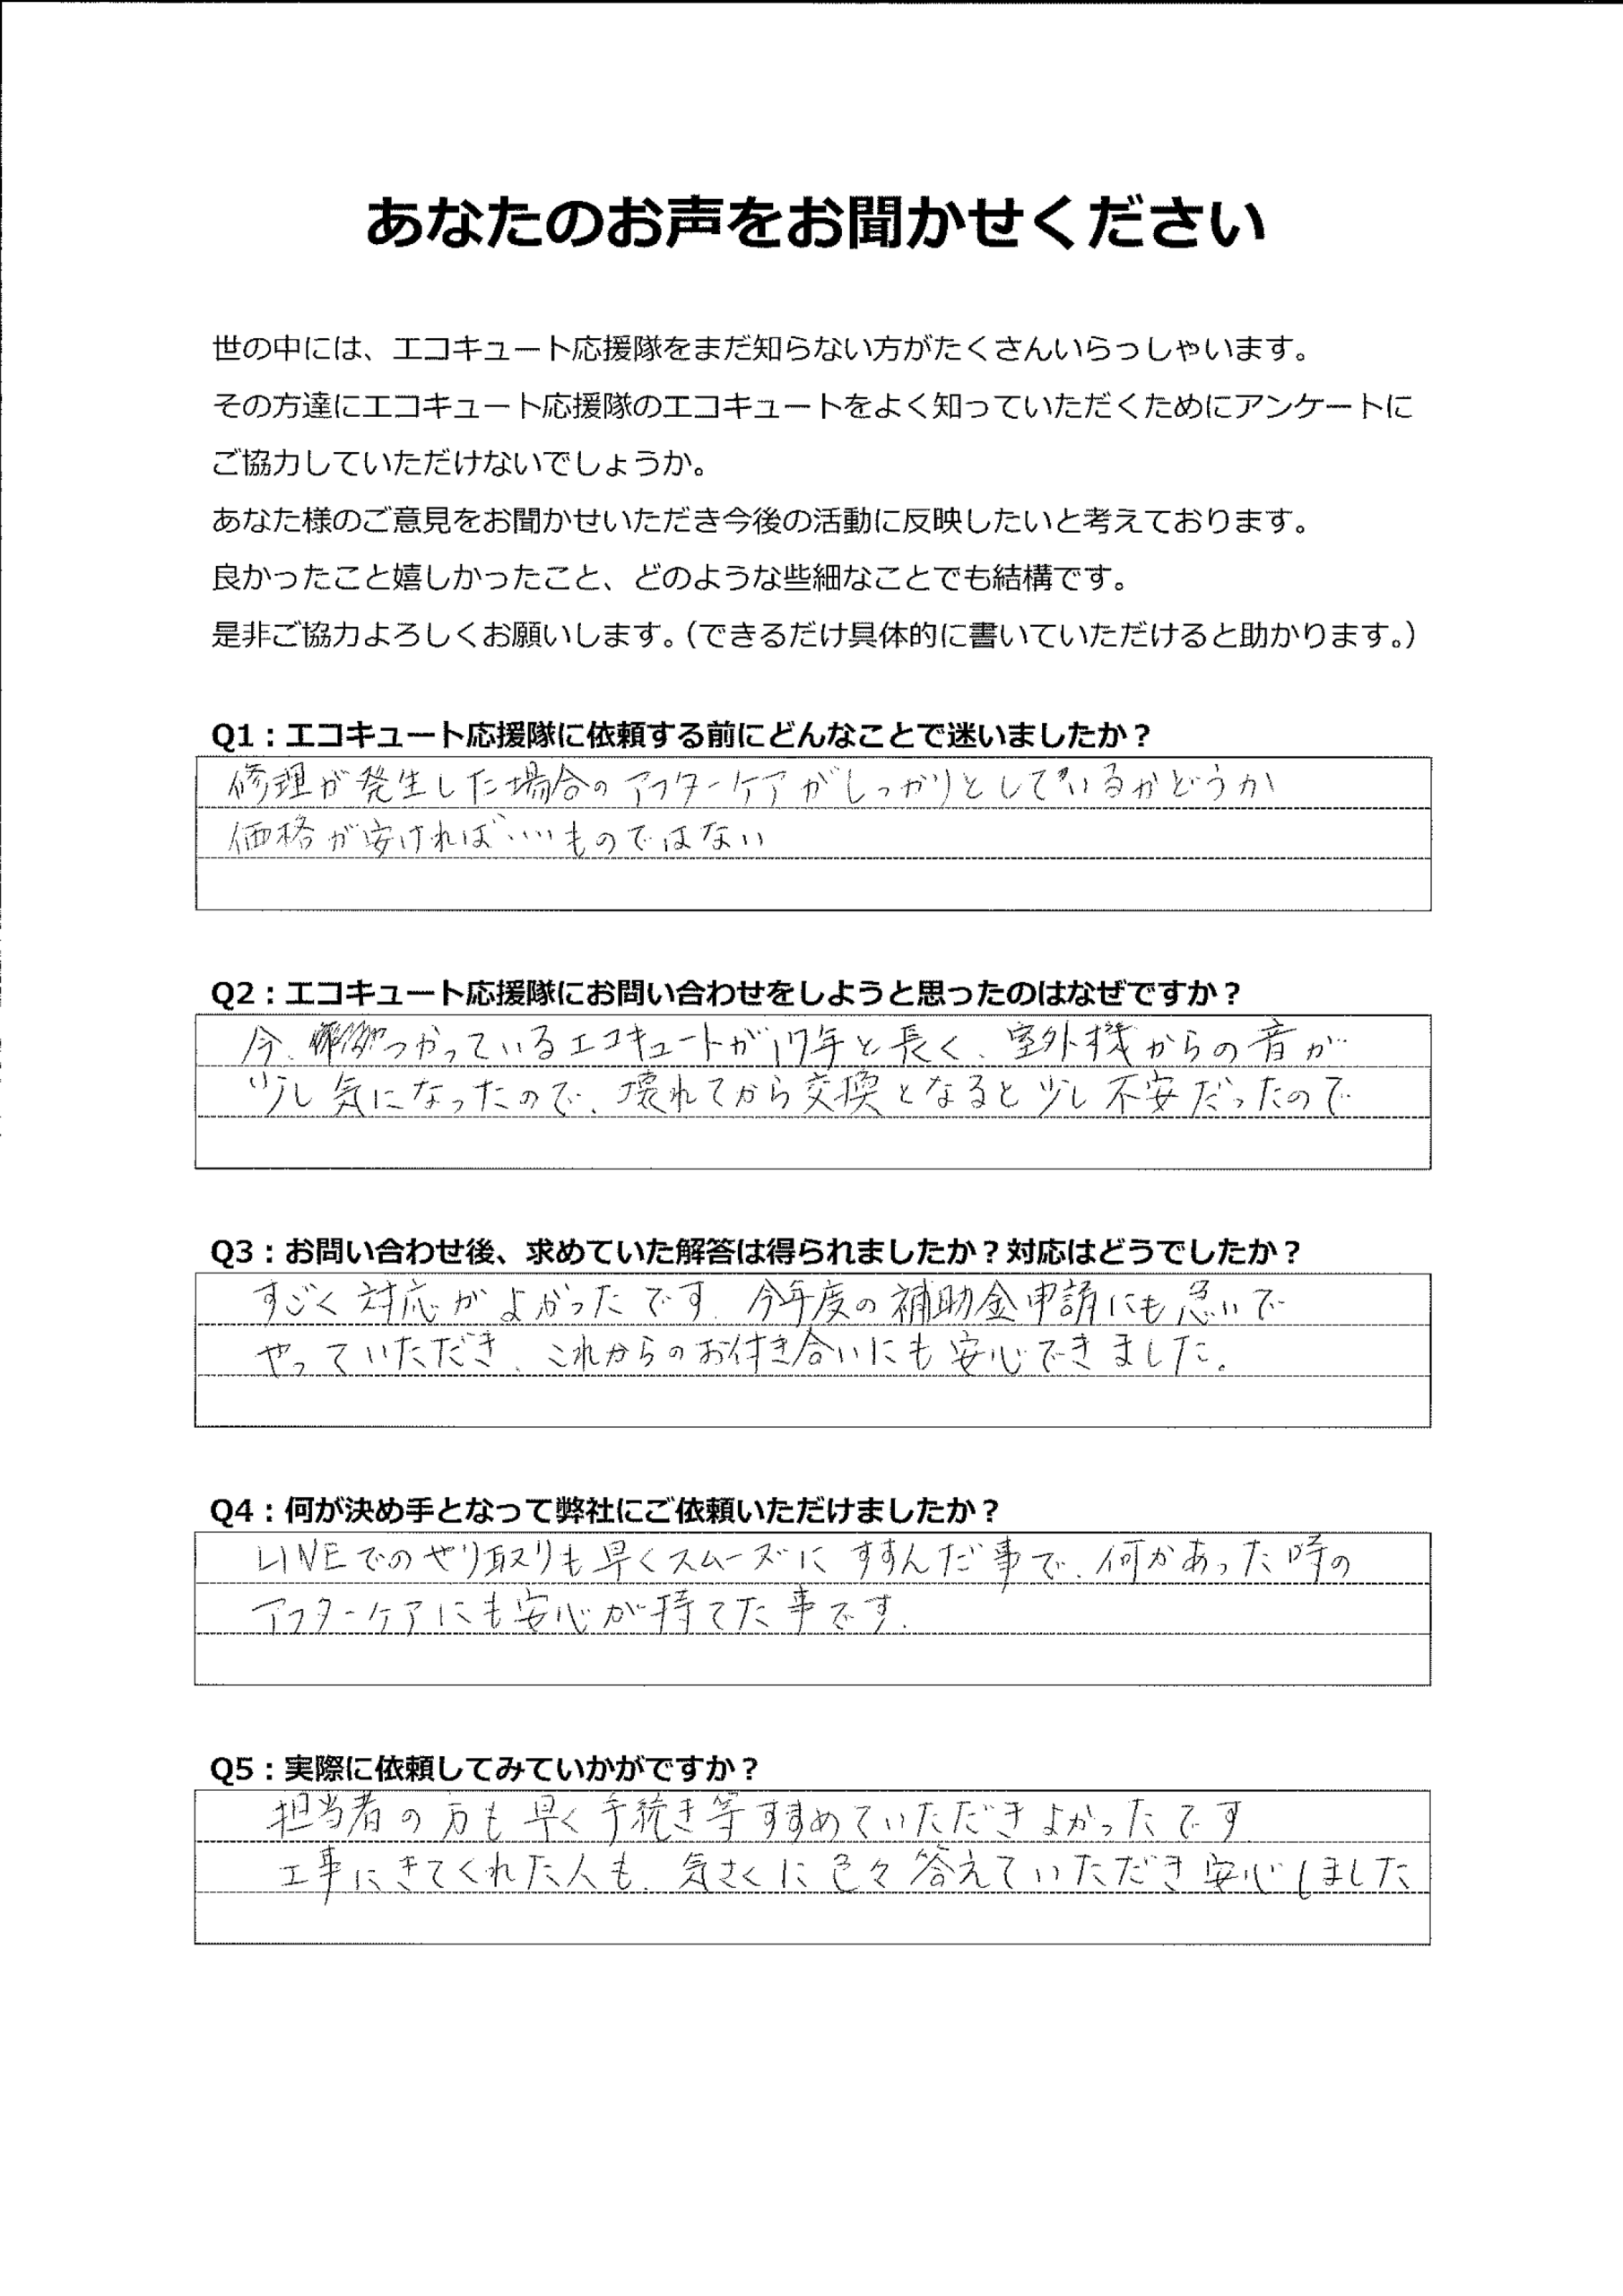 あなたのお声をお聞かせください
世の中には、エコキュート応援隊をまだ知らない方がたくさんいらっしゃいます。
その方達にエコキュート応援隊のエコキュートをよく知っていただくためにアンケートに
ご協力していただけないでしょうか。
あなた様のご意見をお聞かせいただき今後の活動に反映したいと考えております。
良かったこと嬉しかったこと、どのような些細なことでも結構です。
是非ご協力よろしくお願いします。（できるだけ具体的に書いていただけると助かります。）
Q1：エコキュート応援隊に依頼する前にどんなことで迷いましたか？
修理が発生した場合のアフターケアがしっかりとしているかどうか
価格が安ければいいものではない
Q2：エコキュート応援隊にお問い合わせをしようと思ったのはなぜですか？
今、つかっているエコキュートが17年と長く、室外機からの音が
少し気になったので、壊れてから交換となると少し不安だったので
Q3：お問い合わせ後、求めていた解答は得られましたか？対応はどうでしたか？
すごく対応がよかったです。今年度の補助金申請にも急いで
やっていただき、これからのお付き合いにも安心できました。
Q4：何が決め手となって弊社にご依頼いただけましたか？
LINEでのやり取りも早くスムーズにすすんだ事で、何かあった時の
アフターケアにも安心が持てた事です。
Q5：実際に依頼してみていかがですか？
担当者の方も早く手続き等すすめていただきよかったです
工事にきてくれた人も、気さくに色々答えていただき安心しました